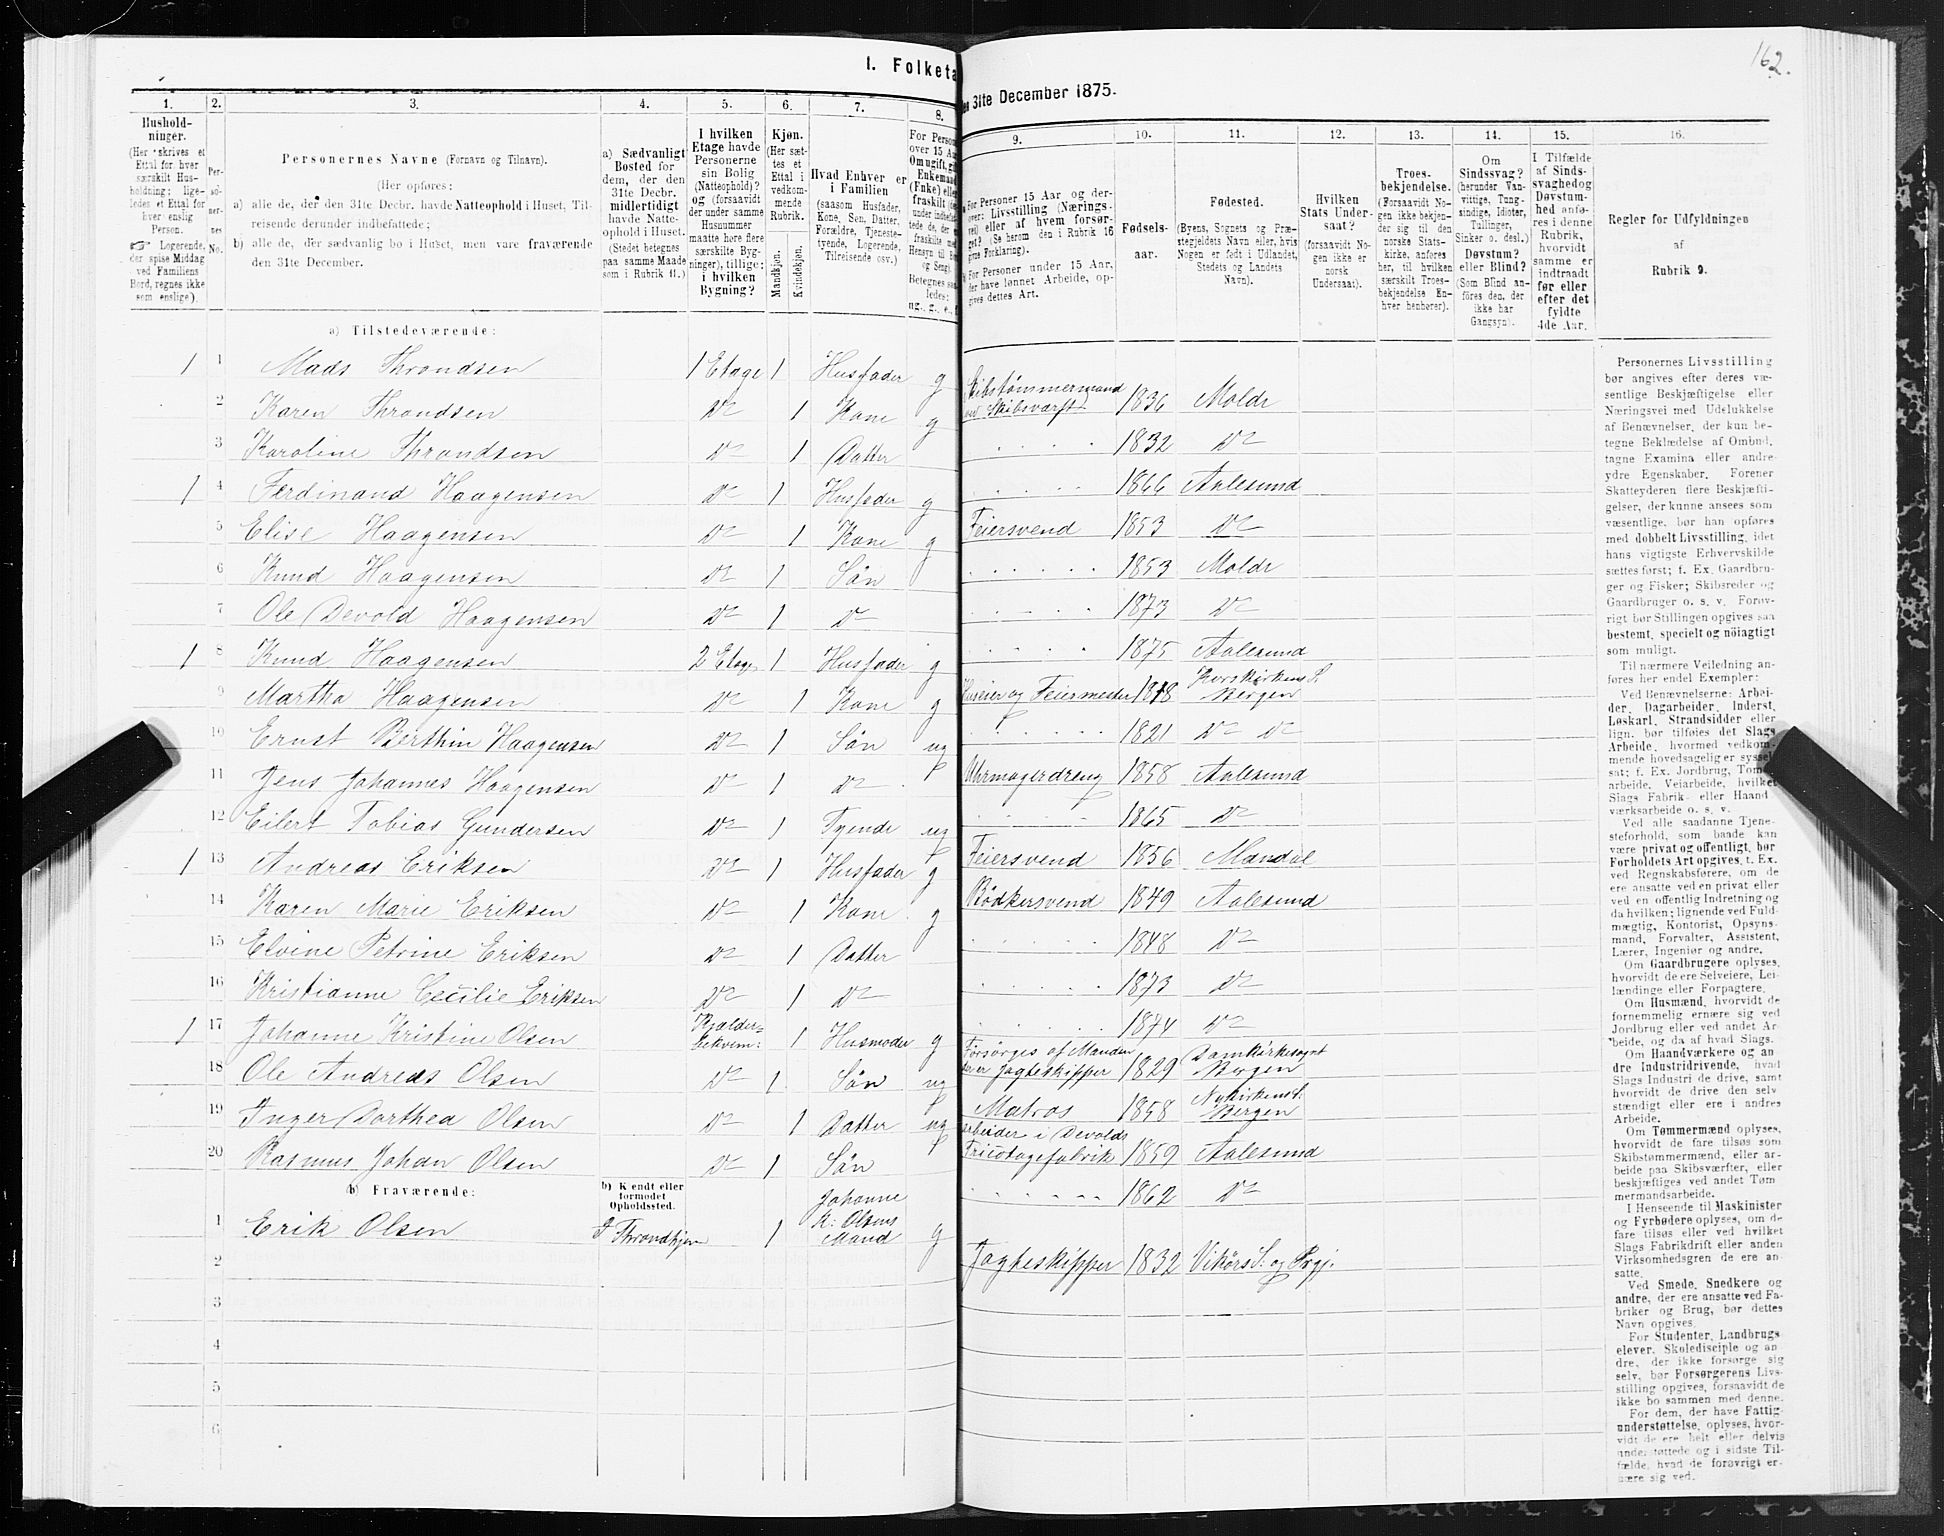 162.
I. Folketæ
den 31te December 1875.
1.
2.
3.
4.
5.
6.
7.
8.
Hushold-
ninger.
(Her skrives et
Ettal for hver
særskilt Hus-
holdning; lige-
ledes et Ettal for
hver enslig
Person.
☞ Logerende,
der spise Middag
ved Familiens
Bord, regnes ikke
som enslige).
Per-
so-
ner-
nes
No.
Personernes Navne (Fornavn og Tilnavn).
(Her opføres:
a) alle de, der den 31te Decbr. havde Natteophold i Huset, Til-
reisende derunder indbefattede;
b) alle de, der sædvanlig bo i Huset, men vare fraværende
den 31te December.
a) Sædvanligt
Bosted for
dem, der den
31te Decbr.
midlertidigt
havde Natte-
ophold i Huset.
(Stedet betegnes
paa samme Maade
som i Rubrik 11.)
I hvilken
Etage havde
Personerne
sin Bolig
(Natteophold)?
og (forsaavidt
der under samme
Husnummer
maatte høre flere
særskilte Byg-
ninger), tillige:
i hvilken
Bygning?
Kjøn.
(Her sæt-
tes et
Ettal i
vedkom-
mende
Rubrik.
Mandkjøn.
Kvindekjøn.
Hvad Enhver er
i Familien
(saasom Husfader,
Kone, Søn, Datter,
Forældre, Tjeneste-
tyende, Logerende,
Tilreisende osv.)
For Person
over 15 Aa
Om ugift, gif
Enkemand
(Enke) elle
fraskilt
ug., g., e., f.
9.
10.
11.
12.
13.
14.
15.
16.
For Personer 15 Aar og der-
over: Livsstilling (Nærings-
vei) eller af hvem forsør-
get? (Se herom den i Rubrik 16
givne Forklaring).
For Personer under 15 Aar,
der have lønnet Arbeide, op-
gives dettes Art.
Fødsels-
aar.
Fødested.
(Byens, Sognets og Præ-
stegjeldets Navn eller, hvis
Nogen er født i Udlandet,
Stedets og Landets
Navn).
Hvilken
Stats Under-
saat?
(forsaavidt No-
gen ikke er
norsk
Undersaat).
Troes-
bekjendelse.
(Forsaavidt No-
gen ikke bekjen-
der sig til den
norske Stats-
kirke, anføres
her, til hvilken
særskilt Troes-
bekjendelse En-
hver henhører).
Om
Sindssvag?
(herunder Van-
vittige, Tung-
sindige, Idioter,
Tullinger,
Sinker o. desl.)
Døvstum?
eller Blind?
(Som Blind an-
føres den, der
ikke har
Gangsyn).
I Tilfælde
af Sinds-
svaghed og
Døvstum-
hed anfø-
res i denne
Rubrik,
hvorvidt
samme er
indtraadt
før eller
efter det
fyldte
4de Aar.
Regler for Udfyldningen
af
Rubrik 9.
a) Tilstedeværende:
1 1 Mads Throndsen 1 Etage 1 Husfader g Skibstømmermand ved Skibsværft 1836 Molde
2 Karen Throndsen do 1 Kone g 1832 do
3 Karoline Throndsen do 1 Datter 1866 Aalesund
1 4 Ferdinand Haagensen do 1 Husfader g Feiersvend 1853 do
5 Elise Haagensen do 1 Kone g 1853 Molde
6 Knud Haagensen do 1 Søn 1873 do
7 Ole Devold Haagensen do 1 do 1875 Aalesund
1 8 Knud Haagensen 2 Etage 1 Husfader g Huseier og Feiermester 1818 Korskirkens S. Bergen
9 Martha Haagensen do 1 Kone g 1821 do do
10 Ernst Berthin Haagensen do 1 Søn ug Uhrmagerdreng 1858 Aalesund
11 Jens Johannes Haagensen do 1 do 1865 do
12 Eilert Tobias Gundersen do 1 Tyende ug Feiersvend 1856 Mandal
1 13 Andreas Eriksen do 1 Husfader g Bødkersvend 1849 Aalesund
14 Karen Marie Eriksen do 1 Kone g 1848 do
15 Elvine Petrine Eriksen do 1 Datter 1873 do
16 Kristianne Cecilie Eriksen do 1 do 1874 do
1 17 Johanne Kristine Olsen Kjælder- bekvem: 1 Husmoder g Forsørges af Manden der er Jagteskipper 1829 Domkirkesognet Bergen
18 Ole Andreas Olsen do 1 Søn ug Matros 1858 Nykirkens S. Bergen
19 Inger Dorthea Olsen do 1 Datter ug arbeider i Devolds Tricotagefabrik 1859 Aalesund
20 Rasmus Johan Olsen do 1 Søn 1862 do
b) Fraværende:
b) Kendt eller
formodet
Opholdssted.
1 Erik Olsen I Throndhjem 1 Johanne K: Olsens Mand g Jagteskipper 1832 Vikørs S: og Prgj.
2
3
4
5
6
Personernes Livsstilling
bør angives efter deres væ-
sentlige Beskjæftigelse eller
Næringsvei med Udelukkelse
af Benævnelser, der kun be-
tegne Beklædelse af Ombud,
tagne Examina eller andre
ydre Egenskaber. Forener
Skatteyderen flere Beskjæfti-
gelser, der kunne ansees som
væsentlige, bør han opføres
med dobbelt Livsstilling, idet
hans vigtigste Erhvervskilde
sættes først; f. Ex. Gaardbru-
ger og Fisker; Skibsreder og
Gaardbruger o. s. v. Forøv-
rigt bør Stillingen opgives saa
bestemt, specielt og nøiagtigt
som muligt.
Til nærmere Veiledning an-
føres her endel Exempler:
Ved Benævnelserne: Arbei-
der, Dagarbeider, Inderst,
Løskarl, Strandsidder eller
lign. bør tilføies det Slags
Arbeide, hvormed vedkom-
mende hovedsagelig er syssel-
sat; f. Ex. Jordbrug, Tomt-
arbeide, Veiarbeide, hvilket
Slags Fabrik- eller Haand-
værksarbeide o. s. v.
Ved alle saadanne Tjene-
steforhold, som baade kan
være privat og offentligt, bør
Forholdets Art opgives, t. Ex.
ved Regnskabsførere, om de
ere ansatte ved en privat eller
ved en offentlig Indretning og
da hvilken; lignende ved Fuld-
mægtig, Kontorist, Opsyns-
mand, Forvalter, Assistent,
Lærer, Ingeniør og andre.
Om Gaardbrugere oplyses,
hvorvidt de ere Selveiere, Lei-
lændinge eller Forpagtere.
Om Husmænd, hvorvidt de
fornemmelig ernære sig ved
Jordbrug eller ved andet Ar-
beide, og da af hvad Slags.
Om Haandværkere og an-
dre Industridrivende, hvad
Slags Industri de drive, samt
hvorvidt de drive den selv-
stændigt eller ere i andres
Arbeide.
Om Tømmermænd oplyses,
hvorvidt de fare tilsøs som
Skibstømmermænd, eller ar-
beide paa Skibsværfter, eller
beskjæftiges ved andet Tøm-
mermandsarbeide.
I Henseende til Maskinister
og Fyrbødere oplyses, om de
fare tilsøs eller ved hvilket
Slags Fabrikdrift eller anden
Virksomhedsgren de ere an-
satte.
Ved Smede, Snedkere og
andre, der ere ansatte ved Fa-
briker og Brug, bør dettes
Navn opgives.
For Studenter, Landbrugs-
elever, Skoledisciple og an-
dre, der ikke forsørge sig
selv, bør Forsørgerens Livs-
stilling opgives, forsaavidt de
ikke bo sammen med denne.
For dem, der have Fattig-
understøttelse, oplyses, hvor-
vidt de ere helt eller delvis
understøttede og i sidste Til-
fælde, hvad de forøvrigt er-
nære sig ved.